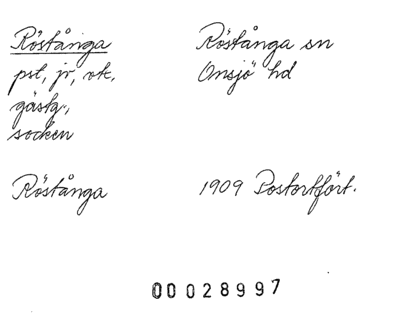 Röstånga
pst, jv, vk,
gästg.,
socken
Röstånga sn
Onsjö hd
Röstånga
1909 Postortfört.
00028997